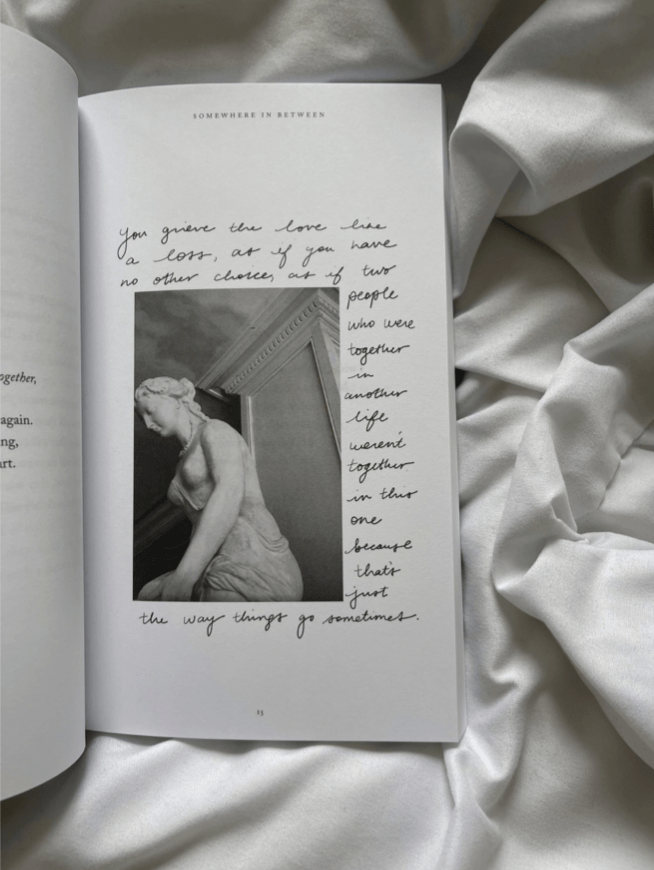 ogether,
again.
ng,
rt.
SOMEWHERE IN BETWEEN
you grieve the love like
a loss, as if you have
no other choice, as if two
people
who were
together
in
another
life
weren't
together
in this
one
because
that's
just
the way things go sometimes.
15